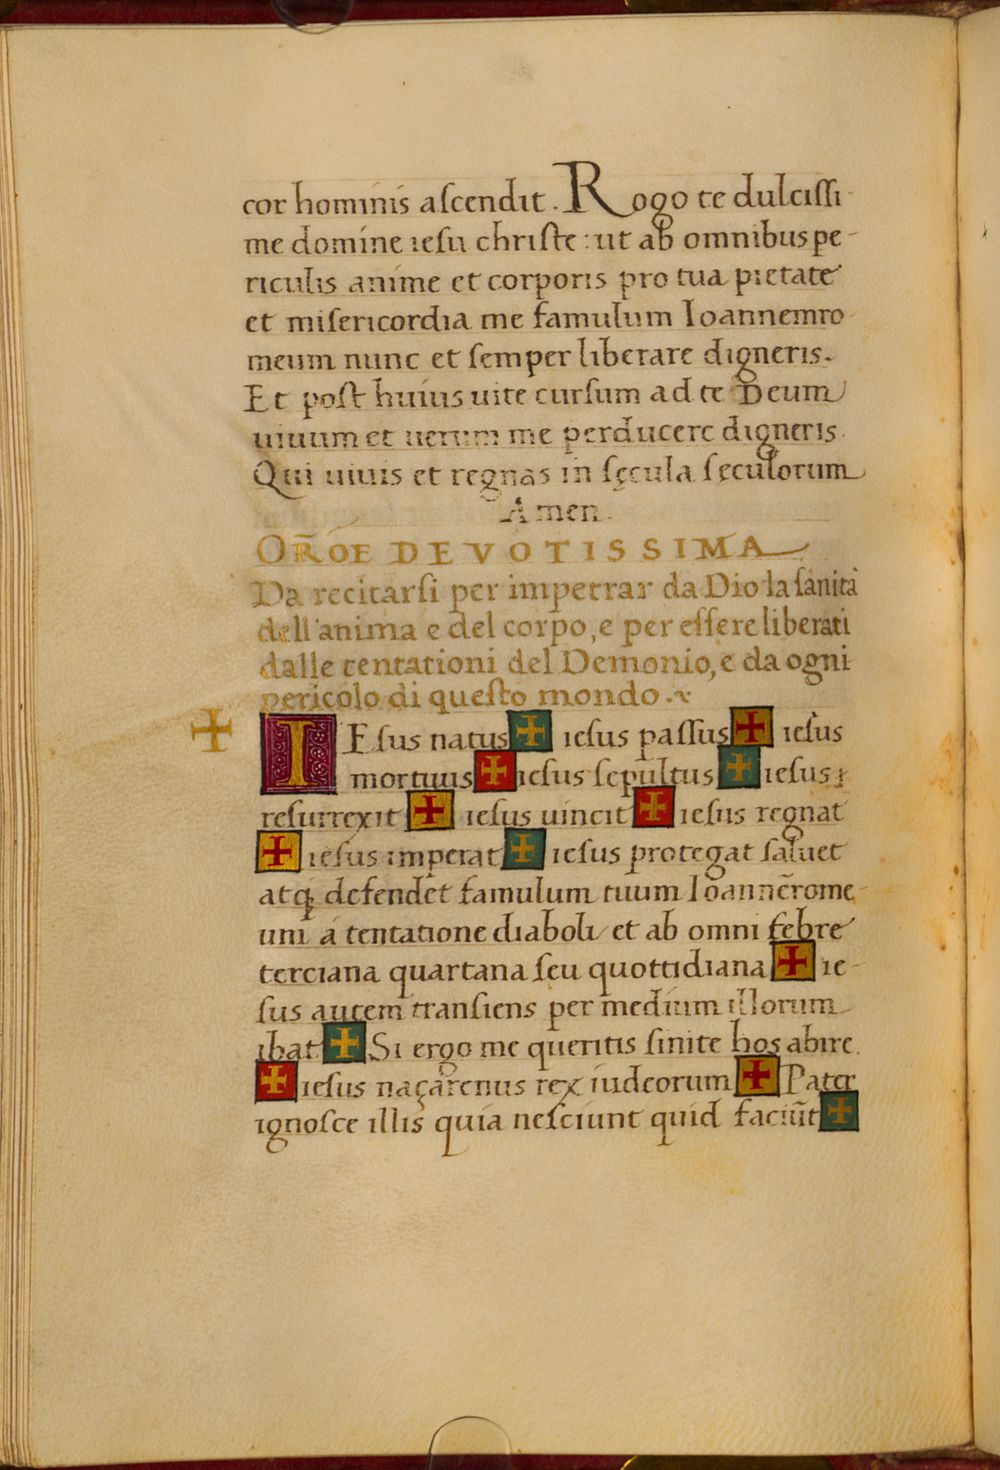 cor hominis aſcendit. Rogo te dulciſſi-
me domine ieſu chriſte: ut ab omnibus pe-
riculis anime et corporis pro tua pietate
et miſericordia me famulum Ioannemro-
meum nunc et ſemper liberare digneris.
Et poſt huius uite curſum ad te Deum
uiuum et uerum me perducere digneris.
Qui uiuis et regnas in ſęcula ſęculorum
Amen.
OR̄OE DEVOTISSIMA
Da recitarſi per impetrar da Dio la ſanità
dell'anima e del corpo, e per eſſere liberati
dalle tentationi del Demonio, e da ogni
pericolo di queſto mondo.
✠ IEſus natus ✠ ieſus paſſus ✠ ieſus
mortuus ✠ ieſus ſepultus ✠ ieſus
reſurrexit ✠ ieſus uincit ✠ ieſus regnat
✠ ieſus imperat ✠ ieſus protegat ſaluet
atq; defendet famulum tuum Ioannērome-
um á tentatione diaboli et ab omni febre
terciana quartana ſeu quottidiana ✠ ie-
ſus autem tranſiens per medium illorum
ibat ✠ Si ergo me queritis ſinite hos abire.
✠ ieſus naçarenus rex iudeorum ✠ Pater
ignoſce illis quia neſciunt quid faciūt ✠